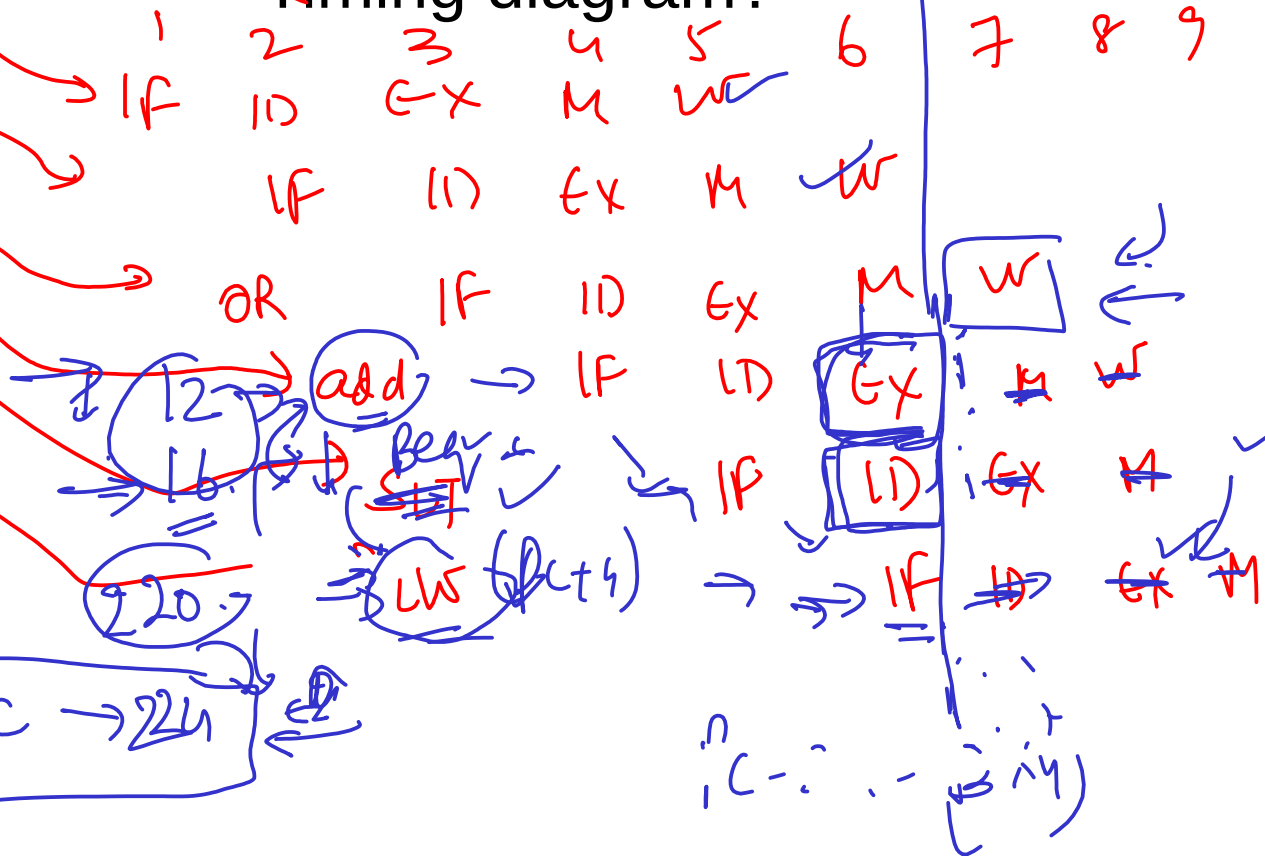 Timing diagram?
1 2 3 4 5 6 7 8 9
IF ID EX M W
IF ID EX M W
OR IF ID EX M W
12 add IF ID EX M W
16 Beqv SLT IF ID EX M
220 LW (PC+4) IF ID EX M
C → 224